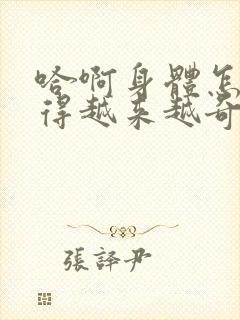 哈啊身體怎
得越來越奇
張譯尹